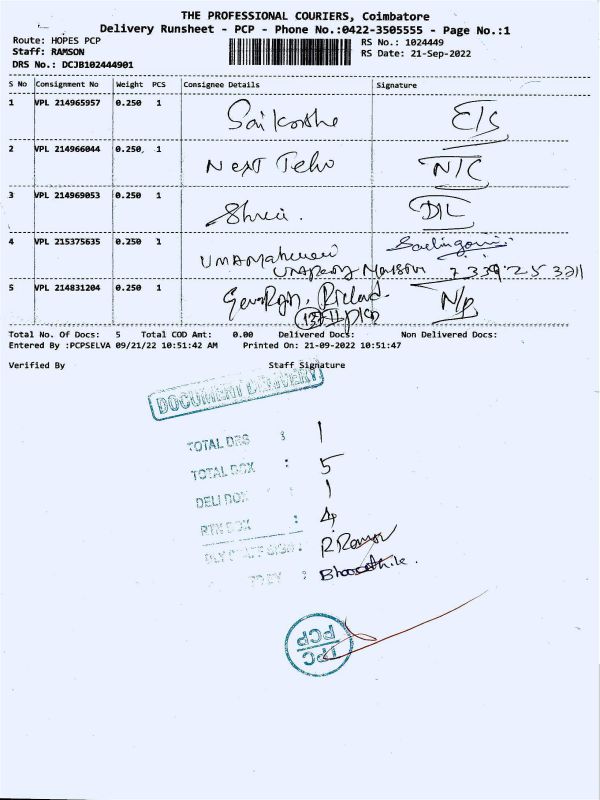 THE PROFESSIONAL COURIERS, Coimbatore
Delivery Runsheet - PCP - Phone No.:0422-3505555 - Page No.:1
Route: HOPES PCP
RS No.: 1024449
Staff: RAMSON
RS Date: 21-Sep-2022
DRS No.: DCJB102444901
S No Consignment No Weight PCS Consignee Details Signature
1 VPL 214965957 0.250 1 E/S
2 VPL 214966044 0.250, 1 N/C
3 VPL 214969053 0.250 1 D/L
4 VPL 215375635 0.250 1
5 VPL 214831204 0.250 1 N/P
Total No. Of Docs: 5 Total COD Amt: 0.00 Delivered Docs: Non Delivered Docs:
Entered By :PCPSELVA 09/21/22 10:51:42 AM Printed On: 21-09-2022 10:51:47
Verified By Staff Signature
DOCUMENT DELIVERY
TOTAL DRS : 1
TOTAL DOX : 5
DELI DOX : 1
RTN DOX : 4
TPC
PCP